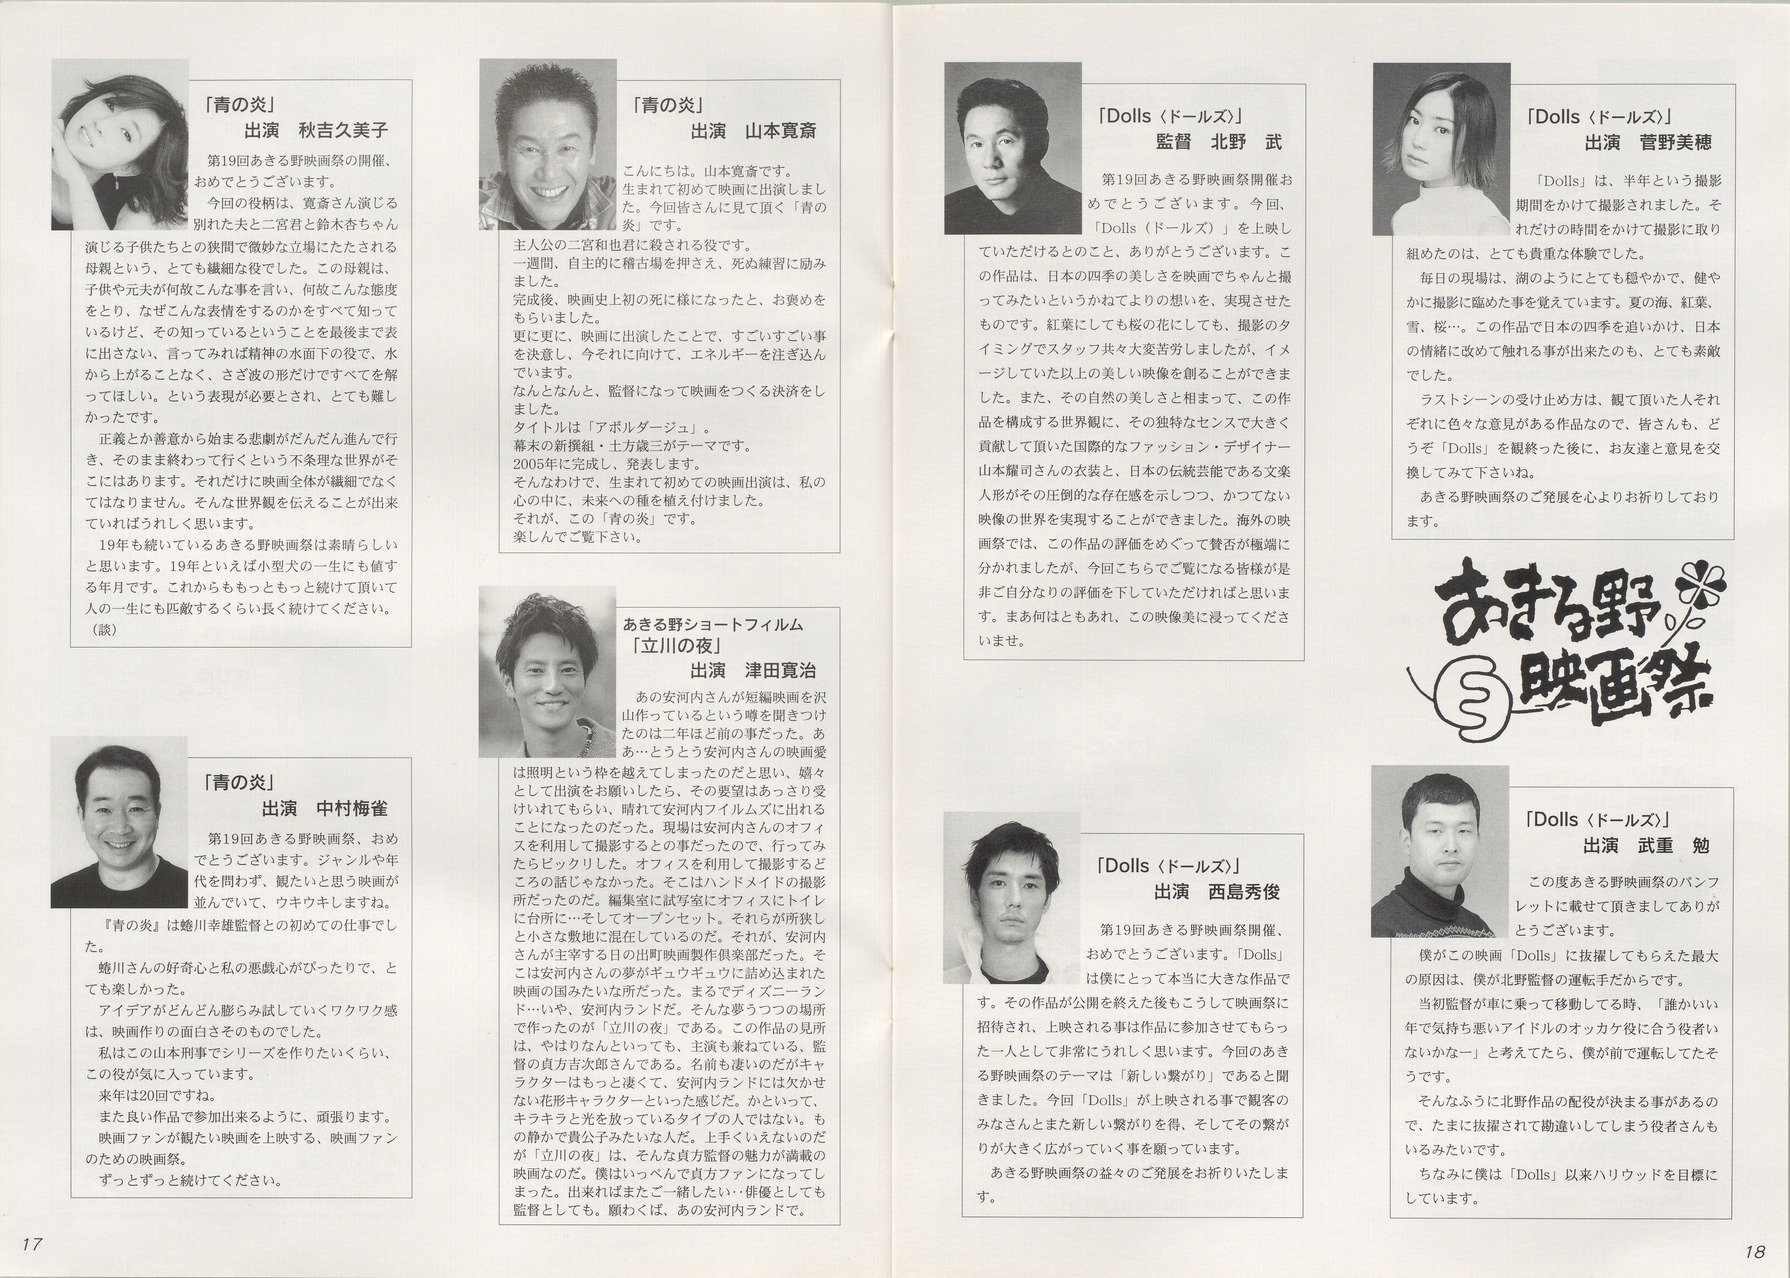 「青の炎」
出演　秋吉久美子
第19回あきる野映画祭の開催、
おめでとうございます。
今回の役柄は、寛斎さん演じる
別れた夫と二宮君と鈴木杏ちゃん
演じる子供たちとの狭間で微妙な立場にたたされる
母親という、とても繊細な役でした。この母親は、
子供や元夫が何故こんな事を言い、何故こんな態度
をとり、なぜこんな表情をするのかをすべて知って
いるけど、その知っているということを最後まで表
に出さない、言ってみれば精神の水面下の役で、水
から上がることなく、さざ波の形だけですべてを解
ってほしい。という表現が必要とされ、とても難し
かったです。
正義とか善意から始まる悲劇がだんだん進んで行
き、そのまま終わって行くという不条理な世界がそ
こにはあります。それだけに映画全体が繊細でなく
てはなりません。そんな世界観を伝えることが出来
ていればうれしく思います。
19年も続いているあきる野映画祭は素晴らしい
と思います。19年といえば小型犬の一生にも値す
る年月です。これからももっともっと続けて頂いて
人の一生にも匹敵するくらい長く続けてください。
（談）
「青の炎」
出演　中村梅雀
第19回あきる野映画祭、おめ
でとうございます。ジャンルや年
代を問わず、観たいと思う映画が
並んでいて、ウキウキしますね。
『青の炎』は蜷川幸雄監督との初めての仕事でし
た。
蜷川さんの好奇心と私の悪戯心がぴったりで、と
ても楽しかった。
アイデアがどんどん膨らみ試していくワクワク感
は、映画作りの面白さそのものでした。
私はこの山本刑事でシリーズを作りたいくらい、
この役が気に入っています。
来年は20回ですね。
また良い作品で参加出来るように、頑張ります。
映画ファンが観たい映画を上映する、映画ファン
のための映画祭。
ずっとずっと続けてください。
17
「青の炎」
出演　山本寛斎
こんにちは。山本寛斎です。
生まれて初めて映画に出演しまし
た。今回皆さんに見て頂く「青の
炎」です。
主人公の二宮和也君に殺される役です。
一週間、自主的に稽古場を押さえ、死ぬ練習に励み
ました。
完成後、映画史上初の死に様になったと、お褒めを
もらいました。
更に更に、映画に出演したことで、すごいすごい事
を決意し、今それに向けて、エネルギーを注ぎ込ん
でいます。
なんとなんと、監督になって映画をつくる決済をし
ました。
タイトルは「アポルダージュ」。
幕末の新撰組・土方歳三がテーマです。
2005年に完成し、発表します。
そんなわけで、生まれて初めての映画出演は、私の
心の中に、未来への種を植え付けました。
それが、この「青の炎」です。
楽しんでご覧下さい。
あきる野ショートフィルム
「立川の夜」
出演　津田寛治
あの安河内さんが短編映画を沢
山作っているという噂を聞きつけ
たのは二年ほど前の事だった。あ
あ…とうとう安河内さんの映画愛
は照明という枠を越えてしまったのだと思い、嬉々
として出演をお願いしたら、その要望はあっさり受
けいれてもらい、晴れて安河内フイルムズに出れる
ことになったのだった。現場は安河内さんのオフィ
スを利用して撮影するとの事だったので、行ってみ
たらビックリした。オフィスを利用して撮影するど
ころの話じゃなかった。そこはハンドメイドの撮影
所だったのだ。編集室に試写室にオフィスにトイレ
に台所に…そしてオープンセット。それらが所狭し
と小さな敷地に混在しているのだ。それが、安河内
さんが主宰する日の出町映画製作倶楽部だった。そ
こは安河内さんの夢がギュウギュウに詰め込まれた
映画の国みたいな所だった。まるでディズニーラン
ド…いや、安河内ランドだ。そんな夢うつつの場所
で作ったのが「立川の夜」である。この作品の見所
は、やはりなんといっても、主演も兼ねている、監
督の貞方吉次郎さんである。名前も凄いのだがキャ
ラクターはもっと凄くて、安河内ランドには欠かせ
ない花形キャラクターといった感じだ。かといって、
キラキラと光を放っているタイプの人ではない。も
の静かで貴公子みたいな人だ。上手くいえないのだ
が「立川の夜」は、そんな貞方監督の魅力が満載の
映画なのだ。僕はいっぺんで貞方ファンになってし
まった。出来ればまたご一緒したい‥俳優としても
監督としても。願わくば、あの安河内ランドで。
「Dolls〈ドールズ〉」
監督　北野　武
第19回あきる野映画祭開催お
めでとうございます。今回、
「Dolls（ドールズ）」を上映し
ていただけるとのこと、ありがとうございます。こ
の作品は、日本の四季の美しさを映画でちゃんと撮
ってみたいというかねてよりの想いを、実現させた
ものです。紅葉にしても桜の花にしても、撮影のタ
イミングでスタッフ共々大変苦労しましたが、イメ
ージしていた以上の美しい映像を創ることができま
した。また、その自然の美しさと相まって、この作
品を構成する世界観に、その独特なセンスで大きく
貢献して頂いた国際的なファッション・デザイナー
山本耀司さんの衣装と、日本の伝統芸能である文楽
人形がその圧倒的な存在感を示しつつ、かつてない
映像の世界を実現することができました。海外の映
画祭では、この作品の評価をめぐって賛否が極端に
分かれましたが、今回こちらでご覧になる皆様が是
非ご自分なりの評価を下していただければと思いま
す。まあ何はともあれ、この映像美に浸ってくださ
いませ。
「Dolls〈ドールズ〉」
出演　西島秀俊
第19回あきる野映画祭開催、
おめでとうございます。「Dolls」
は僕にとって本当に大きな作品で
す。その作品が公開を終えた後もこうして映画祭に
招待され、上映される事は作品に参加させてもらっ
た一人として非常にうれしく思います。今回のあき
る野映画祭のテーマは「新しい繋がり」であると聞
きました。今回「Dolls」が上映される事で観客の
みなさんとまた新しい繋がりを得、そしてその繋が
りが大きく広がっていく事を願っています。
あきる野映画祭の益々のご発展をお祈りいたしま
す。
「Dolls〈ドールズ〉」
出演　菅野美穂
「Dolls」は、半年という撮影
期間をかけて撮影されました。そ
れだけの時間をかけて撮影に取り
組めたのは、とても貴重な体験でした。
毎日の現場は、湖のようにとても穏やかで、健や
かに撮影に臨めた事を覚えています。夏の海、紅葉、
雪、桜…。この作品で日本の四季を追いかけ、日本
の情緒に改めて触れる事が出来たのも、とても素敵
でした。
ラストシーンの受け止め方は、観て頂いた人それ
ぞれに色々な意見がある作品なので、皆さんも、ど
うぞ「Dolls」を観終った後に、お友達と意見を交
換してみて下さいね。
あきる野映画祭のご発展を心よりお祈りしており
ます。
あきる野
映画祭
「Dolls〈ドールズ〉」
出演　武重　勉
この度あきる野映画祭のパンフ
レットに載せて頂きましてありが
とうございます。
僕がこの映画「Dolls」に抜擢してもらえた最大
の原因は、僕が北野監督の運転手だからです。
当初監督が車に乗って移動してる時、「誰かいい
年で気持ち悪いアイドルのオッカケ役に合う役者い
ないかなー」と考えてたら、僕が前で運転してたそ
うです。
そんなふうに北野作品の配役が決まる事があるの
で、たまに抜擢されて勘違いしてしまう役者さんも
いるみたいです。
ちなみに僕は「Dolls」以来ハリウッドを目標に
しています。
18